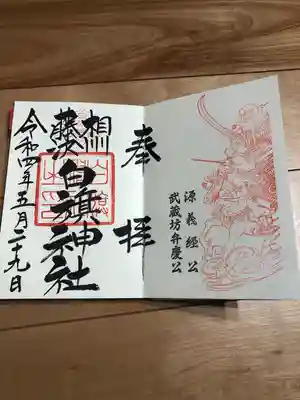 源義経公
武蔵坊弁慶公
奉拝
相州
藤沢白旗神社
令和四年五月二十九日